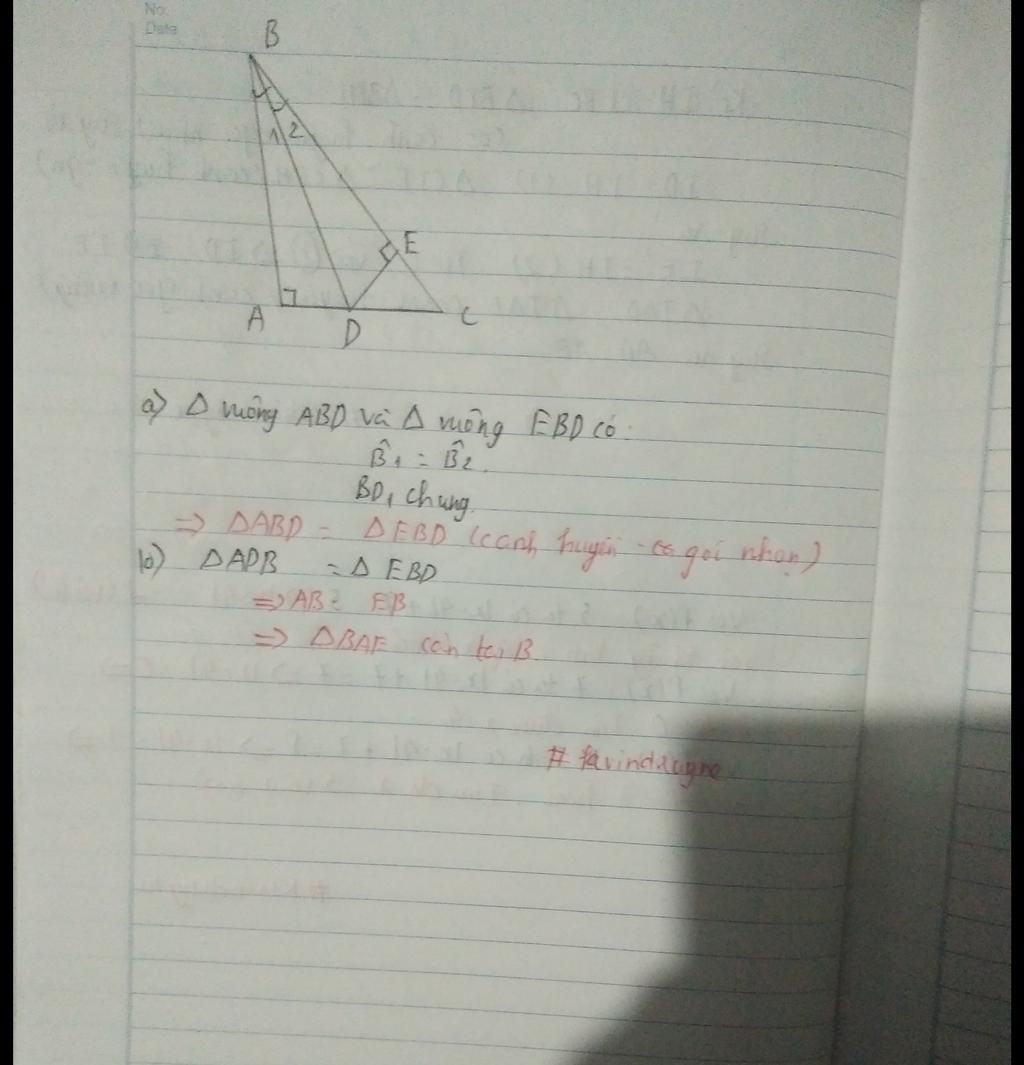 No.
Date
B
1 2
E
A
D
C
a) Δ vuông ABD và Δ vuông EBD có:
B̂₁ = B̂₂.
BD, chung.
=> ΔABD = ΔEBD (cạnh huyền - gói nhọn)
b) ΔADB = Δ EBD
=> AB = EB
=> ΔBAE cân tại B